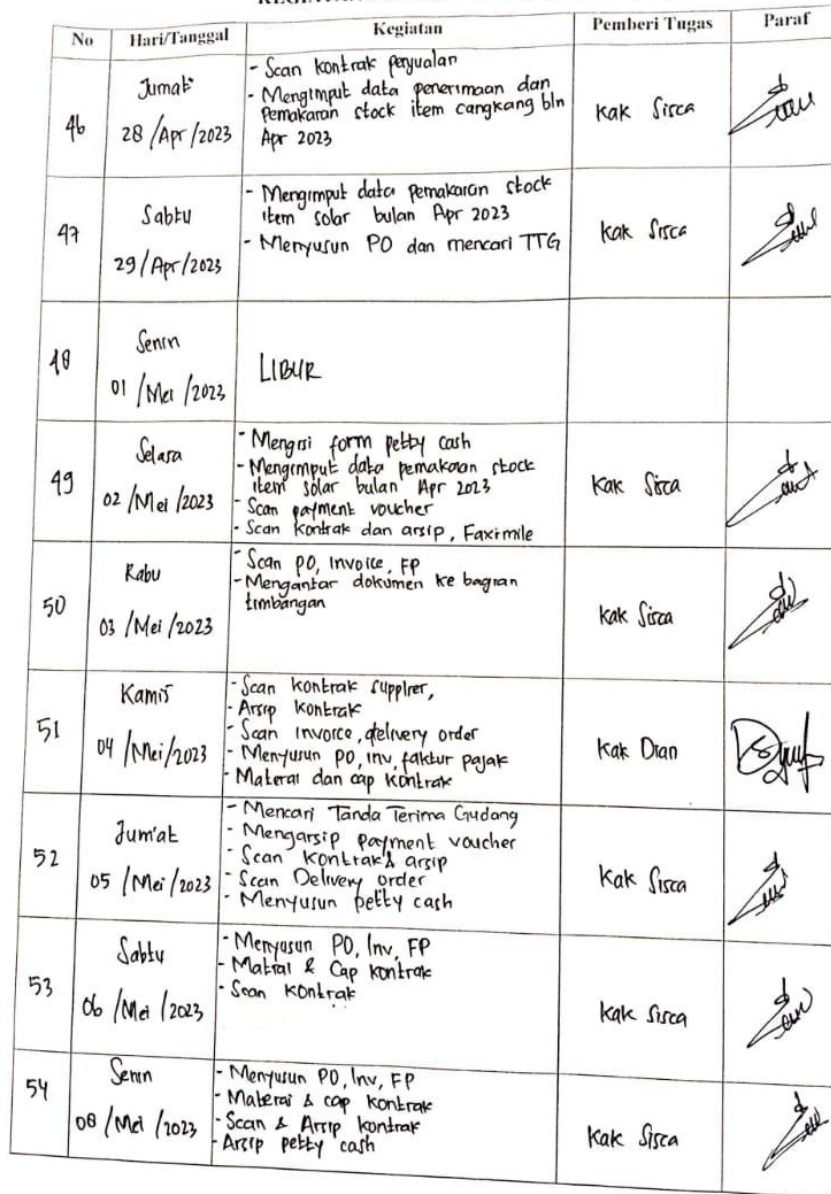 No Hari/Tanggal Kegiatan Pemberi Tugas Paraf
46
Jumat
28/Apr/2023
- Scan kontrak penjualan
- Mengimput data penerimaan dan
Pemakaian stock item cangkang bln
Apr 2023
Kak Sisca
47
Sabtu
29/Apr/2023
- Mengimput data pemakaian stock
item solar bulan Apr 2023
- Menyusun PO dan mencari TTG
Kak Sisca
48
Senin
01/Mei/2023
LIBUR
49
Selasa
02/Mei/2023
- Mengisi form petty cash
- Mengimput data pemakaian stock
item solar bulan Apr 2023
- Scan payment voucher
- Scan kontrak dan arsip, Faximile
Kak Sisca
50
Rabu
03/Mei/2023
- Scan PO, Invoice, FP
- Mengantar dokumen ke bagian
timbangan
Kak Sisca
51
Kamis
04/Mei/2023
- Scan kontrak supplier,
- Arsip kontrak
- Scan Invoice, delivery order
- Menyusun PO, inv, faktur pajak
- Materai dan cap kontrak
Kak Dian
52
Jum'at
05/Mei/2023
- Mencari Tanda Terima Gudang
- Mengarsip payment voucher
- Scan kontrak & arsip
- Scan Delivery order
- Menyusun petty cash
Kak Sisca
53
Sabtu
06/Mei/2023
- Menyusun PO, Inv, FP
- Matrai & Cap kontrak
- Scan kontrak
Kak Sisca
54
Senin
08/Mei/2023
- Menyusun PO, Inv, FP
- Materai & cap kontrak
- Scan & Arsip kontrak
- Arsip petty cash
Kak Sisca